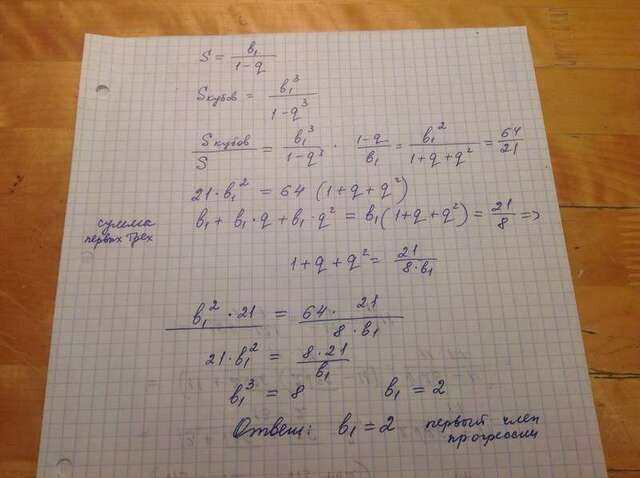 S = b₁/(1-q)
Sкубов = b₁³/(1-q³)
Sкубов/S = b₁³/(1-q³) · (1-q)/b₁ = b₁²/(1+q+q²) = 64/21
21·b₁² = 64 (1+q+q²)
сумма первых трех b₁ + b₁·q + b₁·q² = b₁(1+q+q²) = 21/8 =>
1+q+q² = 21/(8·b₁)
b₁²·21 = 64·21/(8·b₁)
21·b₁² = 8·21/b₁
b₁³ = 8 b₁ = 2
Ответ: b₁ = 2 первый член прогрессии